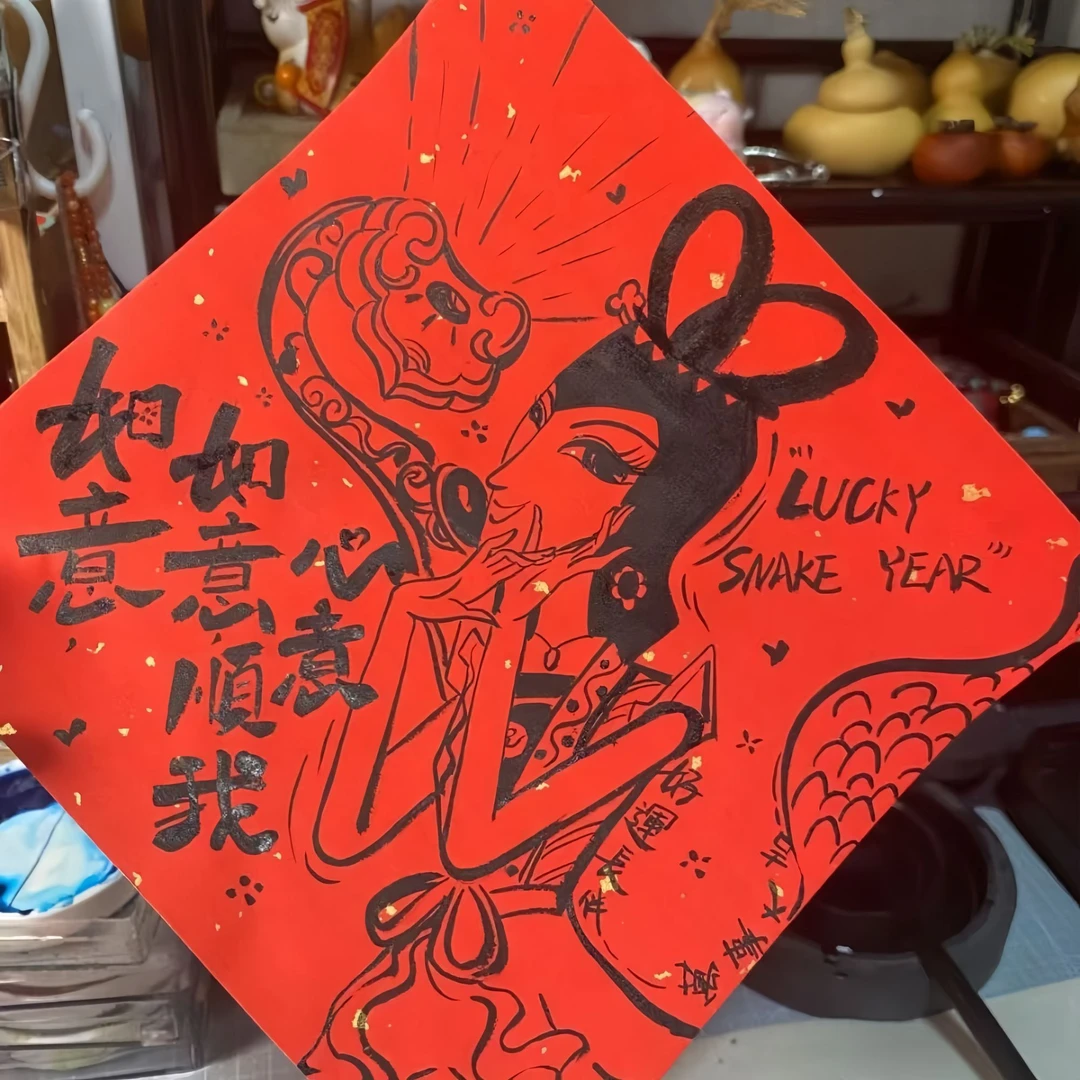 如意，
如意，順我
心意
"LUCKY
SNAKE YEAR"